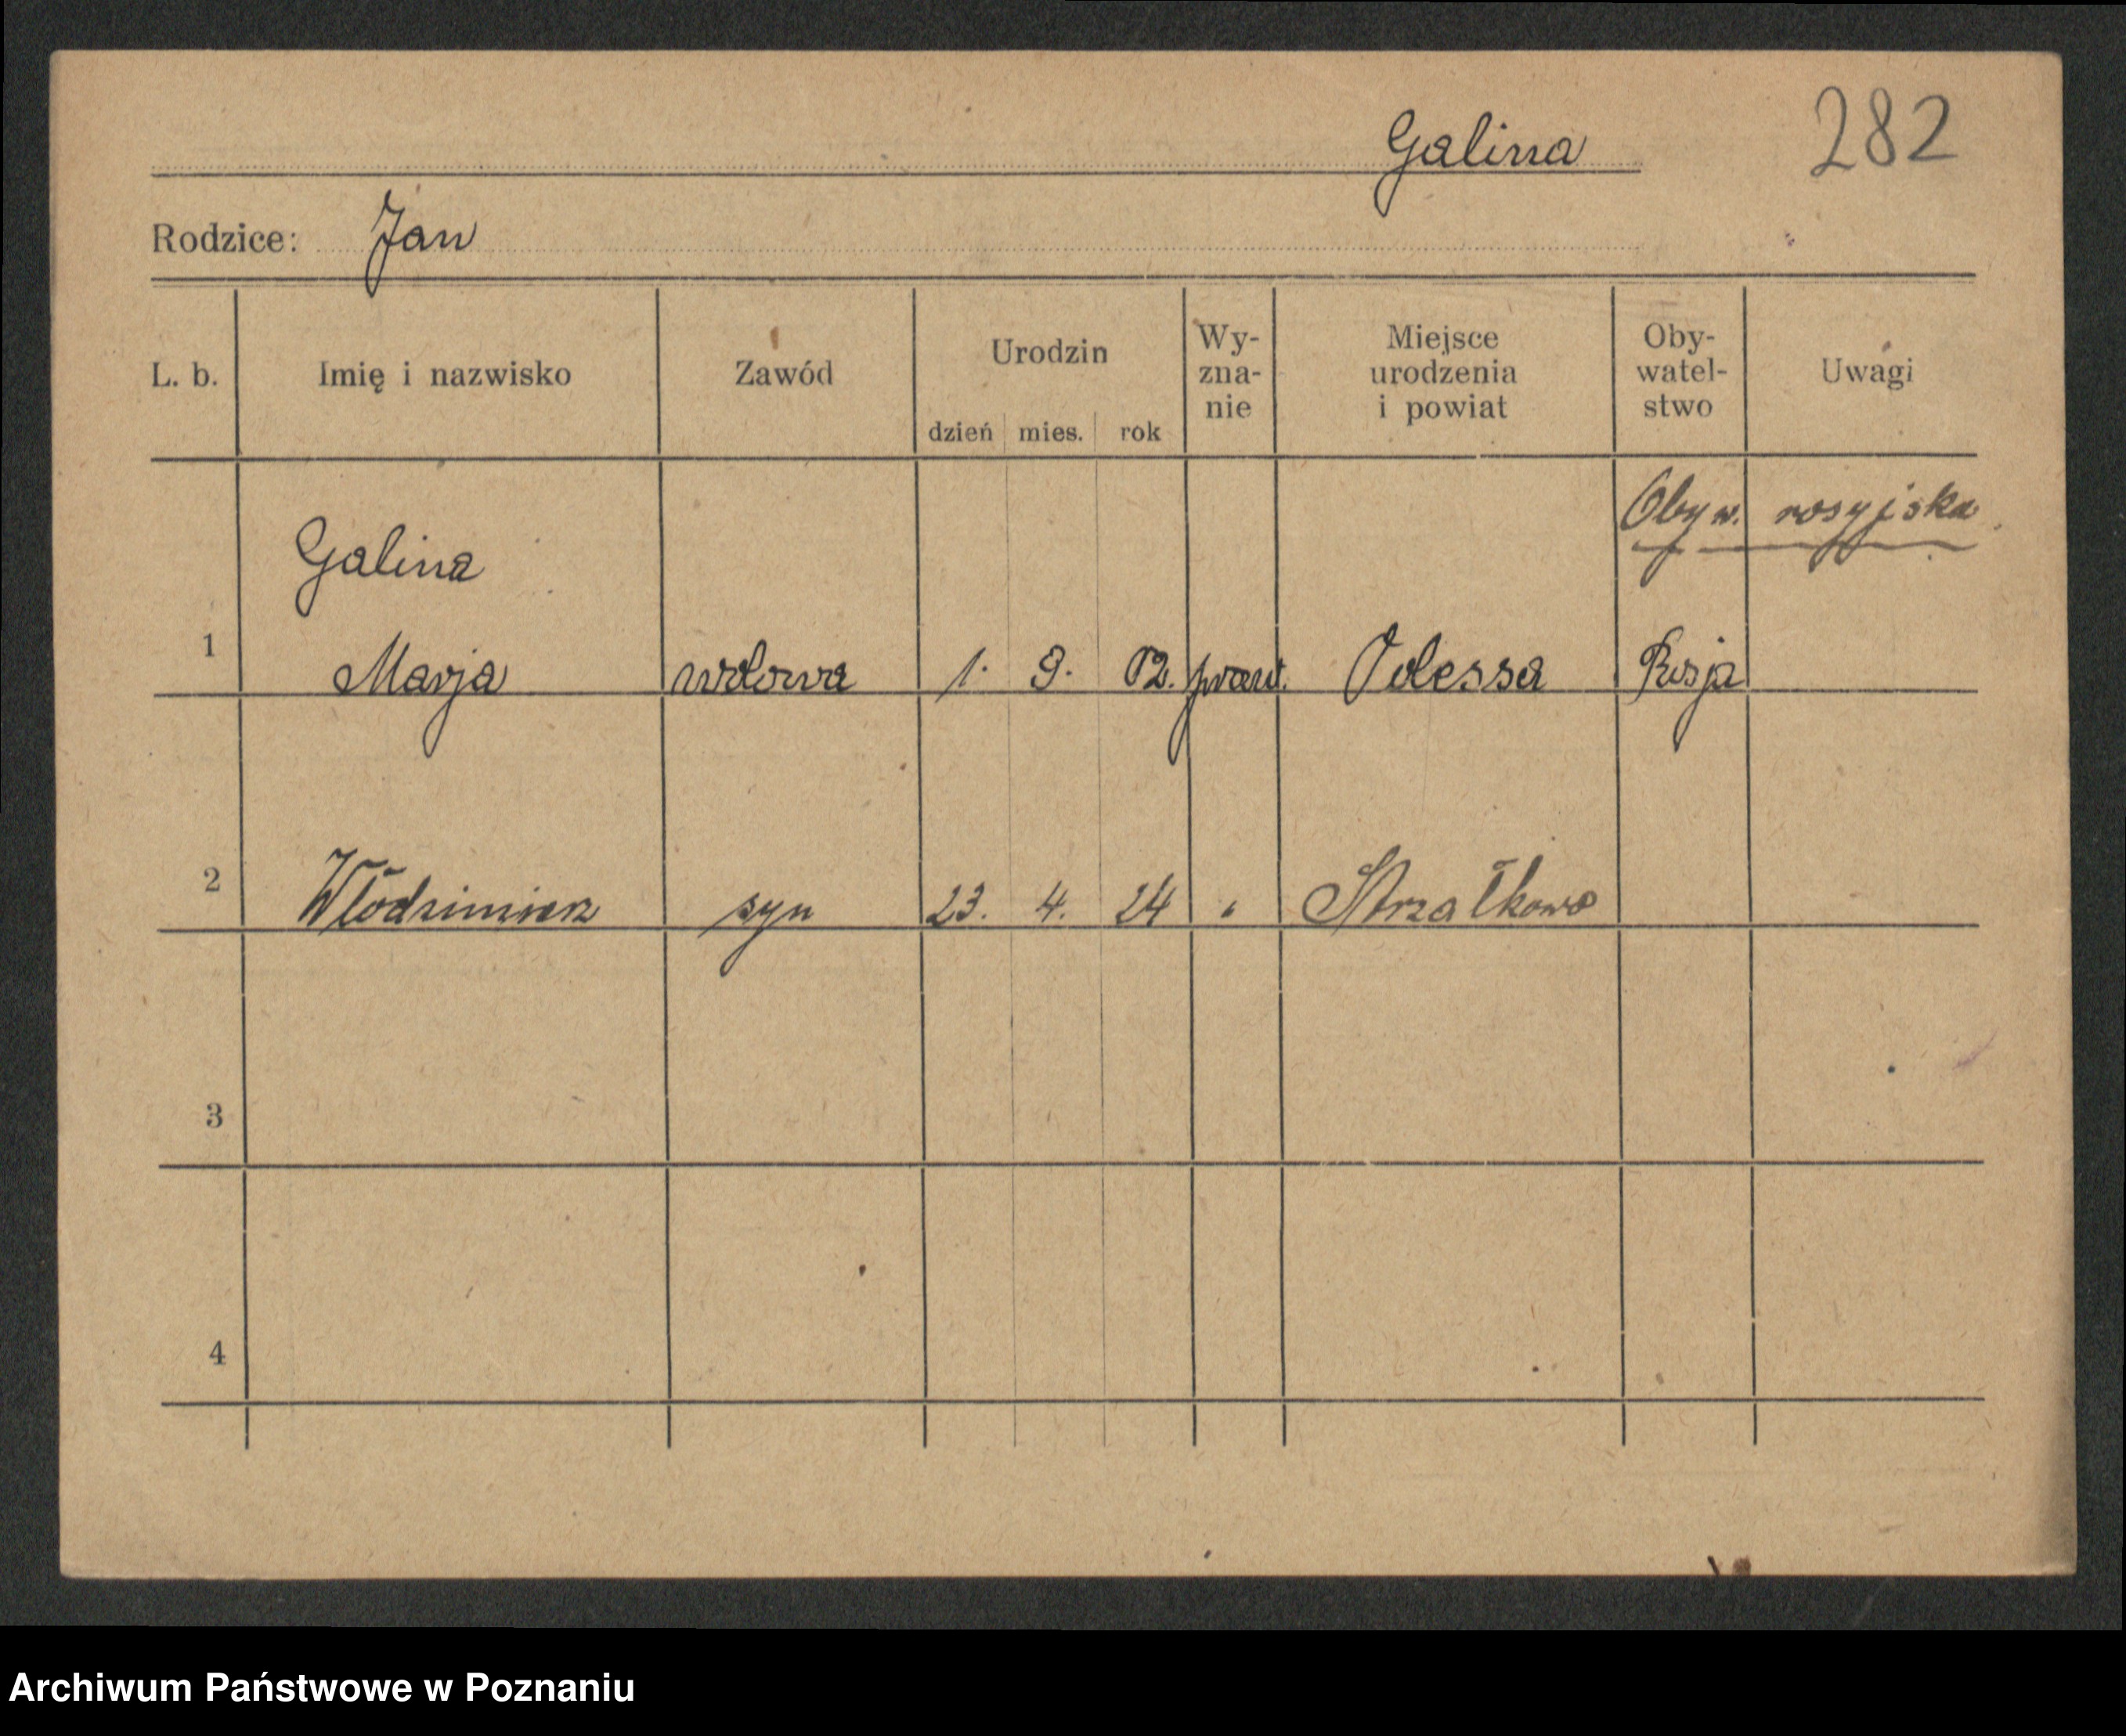 282
Galina
Rodzice: Jan
L. b. Imię i nazwisko Zawód Urodzin dzień mies. rok Wy-zna-nie Miejsce urodzenia i powiat Oby-watel-stwo Uwagi
Obyw. rosyjska
Galina
1 Marja wdowa 1. 9. 02. praw. Odessa Rosja
2 Włodzimierz syn 23. 4. 24 " Strzałkowo
3
4
Archiwum Państwowe w Poznaniu